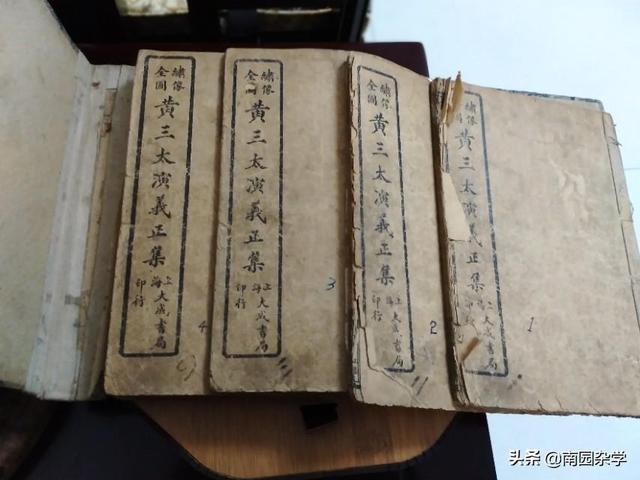 繡像
黄三太演義正集
上海
大成書局
印行
1
繡像
全圖
黄三太演義正集
上海
大成書局
印行
2
繡像
全圖
黄三太演義正集
上海
大成書局
印行
3
三
繡像
全圖
黄三太演義正集
上海
大成書局
印行
4
头条 @南园杂学